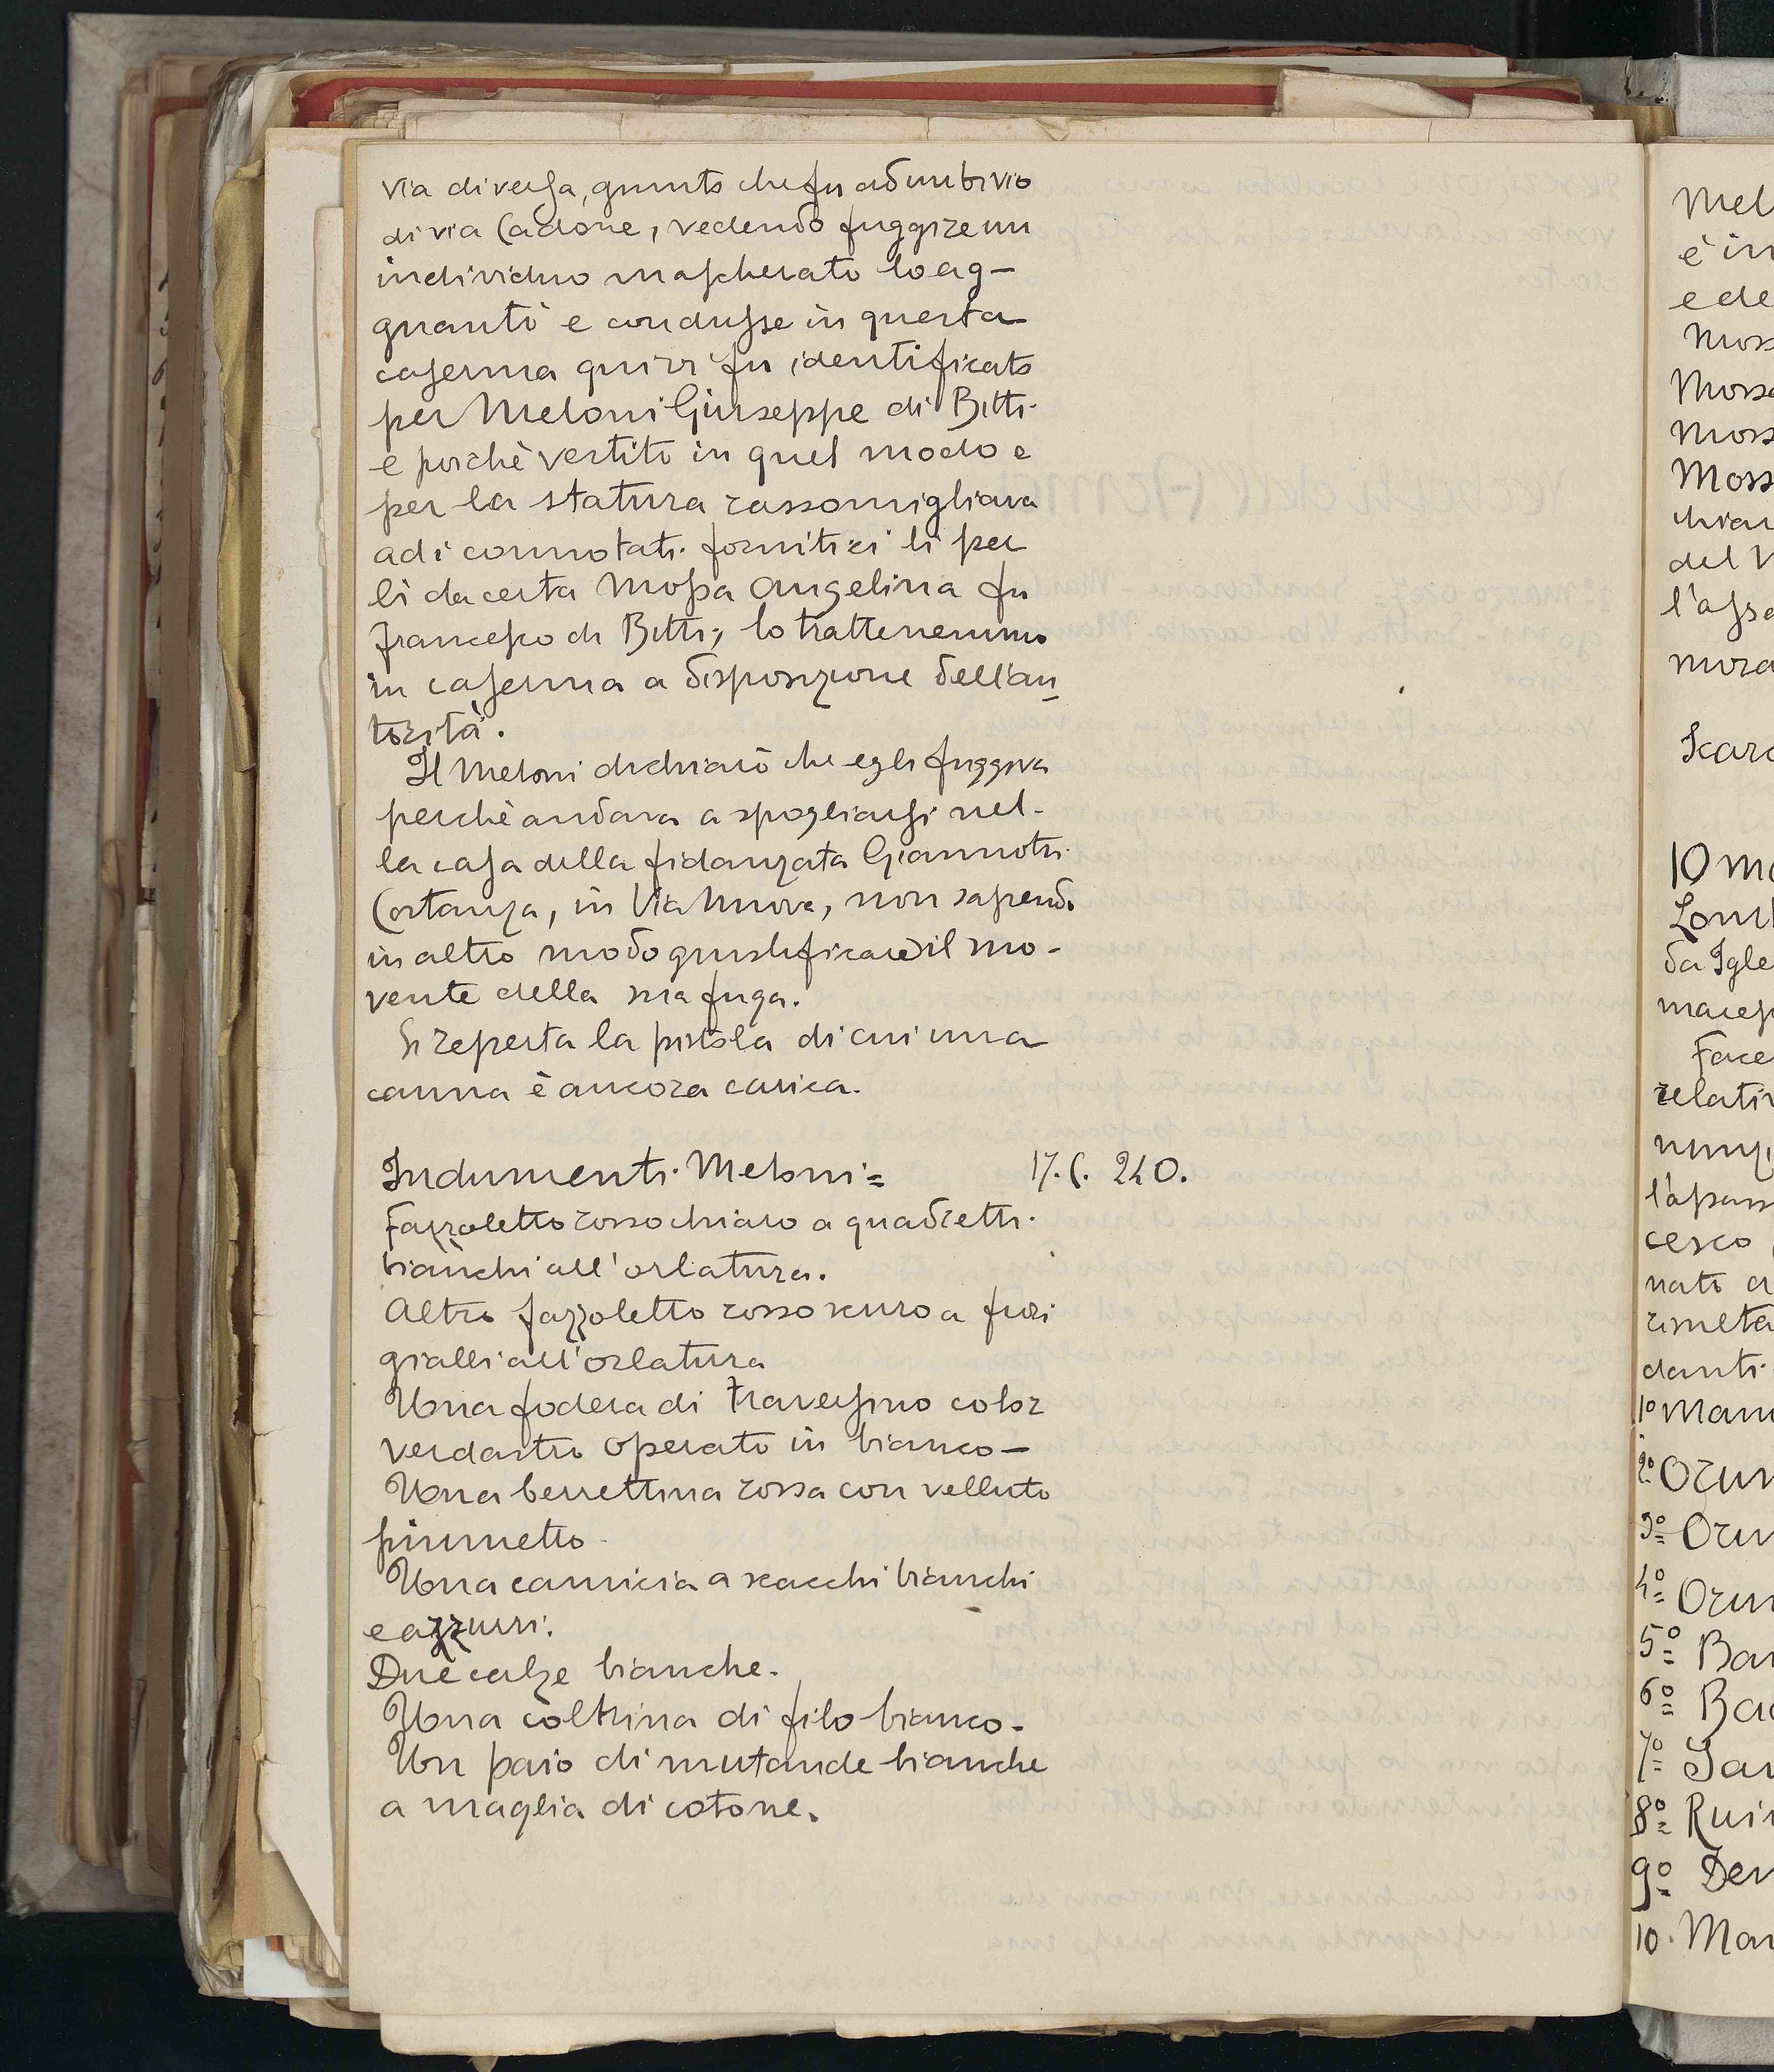 via diversa, giunto che fu ad un bivio
di via Cadone, vedendo fuggire un
individuo mascherato lo ag-
guantò e condusse in questa
caserma quivi fu identificato
per Meloni Giuseppe di Bitti
e poichè vestito in quel modo e
per la statura rassomigliava
ad i connotati fornitici lì per
lì da certa Mossa Angelina fu
Francesco di Bitti, lo trattenemmo
in caserma a disposizione dell'au
torità.
Il Meloni dichiarò che egli fuggiva
perchè andava a spogliarsi nel-
la casa della fidanzata Giannotti
Costanza, in Via Nuova, non sapendo
in altro modo giustificare il mo-
vente della sua fuga.
Si reperta la pistola di cui una
canna è ancora carica.
Indumenti Meloni = 17.6. 240.
Fazzoletto rosso chiaro a quadretti
bianchi all'orlatura.
Altro fazzoletto rosso scuro a fiori
gialli all'orlatura
Una fodera di traversino color
verdastro operato in bianco -
Una berrettina rossa con velluto
piumetto
Una camicia a scacchi bianchi
e azzurri.
Due calze bianche.
Una coltrina di filo bianco.
Un paio di mutande bianche
a maglia di cotone.
Mel
è in
e de
Moss
Moss
Moss
del V
l'asse
10 Ma
Lomb
da Igle
Face
relativ
cesco
nato a
danti
1º Mann
2º Orun
3º Orun
4º Orun
5º Bar
6º Bac
7º San
8º Rui
9º Der
10. Mar